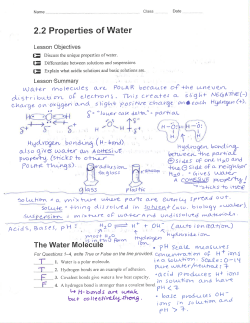 Name Class Date
2.2 Properties of Water
Lesson Objectives
Discuss the unique properties of water.
Differentiate between solutions and suspensions.
Explain what acidic solutions and basic solutions are.
Lesson Summary
Water molecules are POLAR because of the uneven
distribution of electrons. This creates a slight NEGATIVE(-)
charge on oxygen and slight positive charge on each Hydrogen(+).
Hydrogen bonding (H-bond)
also give water an adhesive
property (sticks to other
POLAR things).
adhesion
to glass
glass
plastic
Hydrogen bonding
between the partial
⊕ sides of one H₂O and
the ⊖ side of a neighbor
H₂O - gives water
a cohesive property!
sticks to itself
Solution = a mixture where parts are evenly spread out.
Solute = thing dissolved in solvent
Suspension = mixture of water and undissolved materials
Acids, Bases, pH! H₂O ⇌ H⁺ + OH⁻
most H₂O
is in this form
Hydrogen
ion
Hydroxide
ion
The Water Molecule
For Questions 1–4, write True or False on the line provided.
T 1. Water is a polar molecule.
2. Hydrogen bonds are an example of adhesion.
3. Covalent bonds give water a low heat capacity.
4. A hydrogen bond is stronger than a covalent bond.
H-bonds are weak
but collectively strong.
• pH Scale measures
concentration of H⁺ ions
in a solution. Scale: 0-14
Pure water/Neutral: 7
• acid produces H⁺ ions
in solution and have
pH < 7
• base produces OH⁻
ions in solution and
pH > 7.